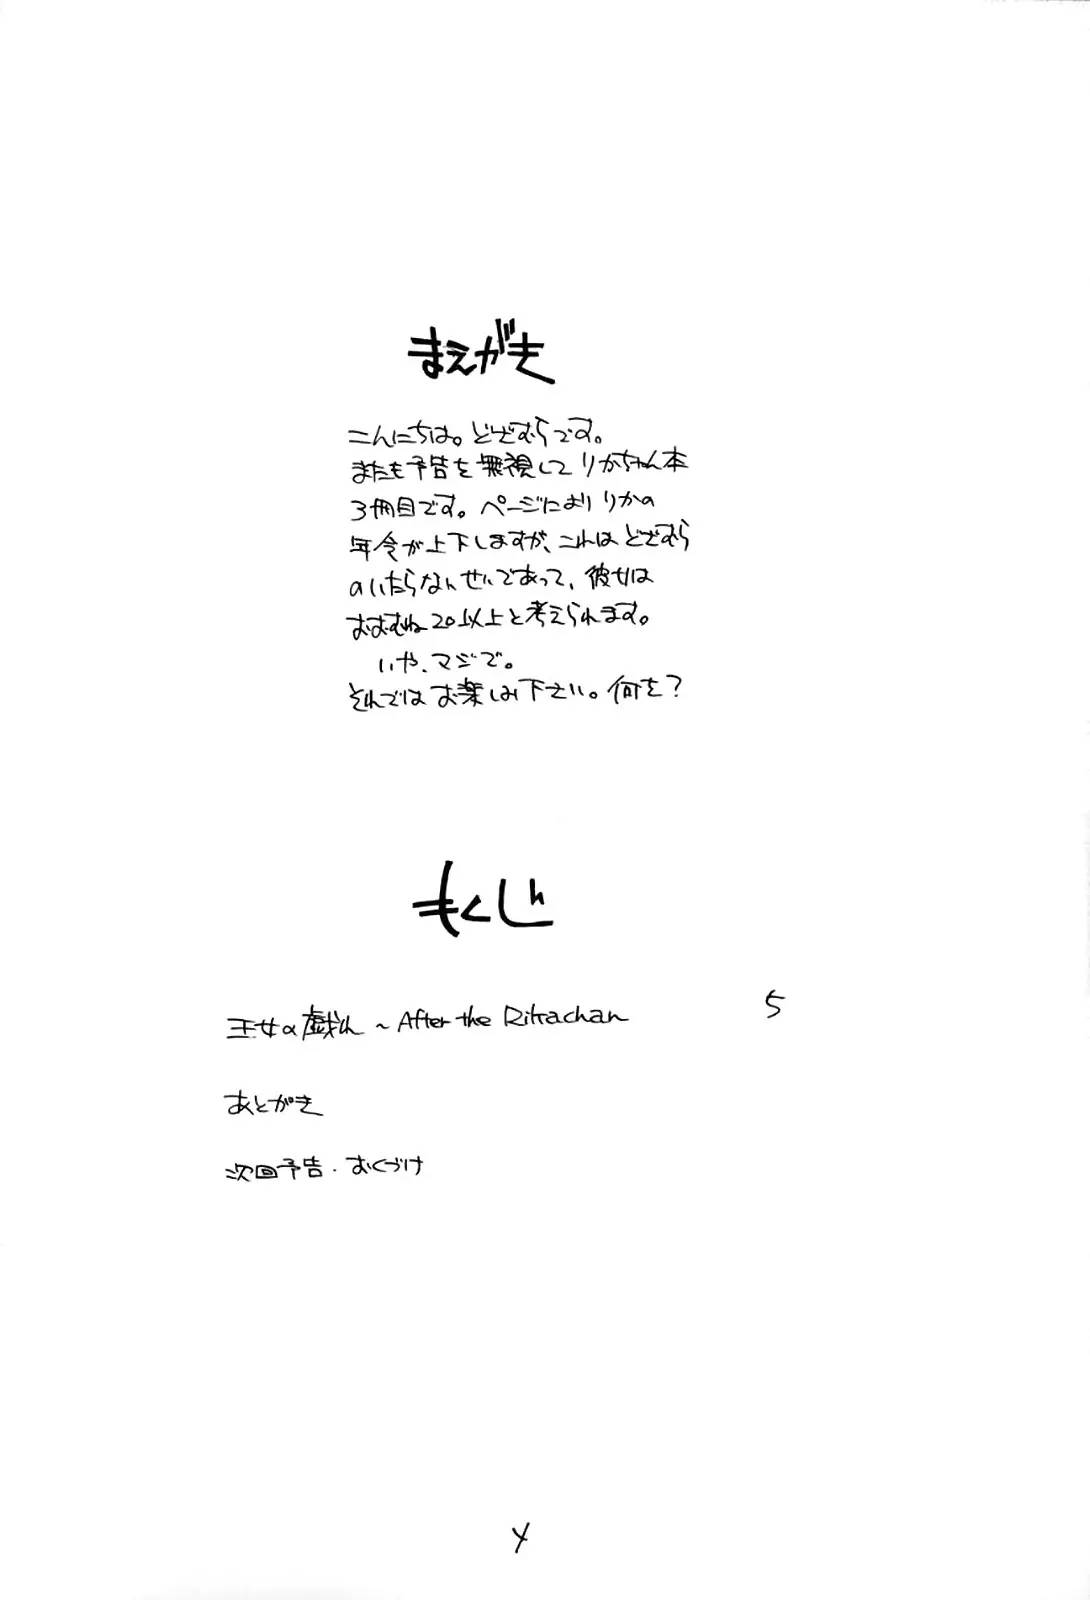 まえがき
こんにちは。どざむらです。
またも予告を無視してりかちゃん本
3冊目です。ページによりりかの
年令が上下しますが、これはどざむら
のいたらなんせいであって、彼女は
おおむね20以上と考えられます。
いや、マジで。
それではお楽しみ下さい。何を?
もくじ
王女の戯れ ~After the Rikachan 5
あとがき
次回予告.おくづけ
4